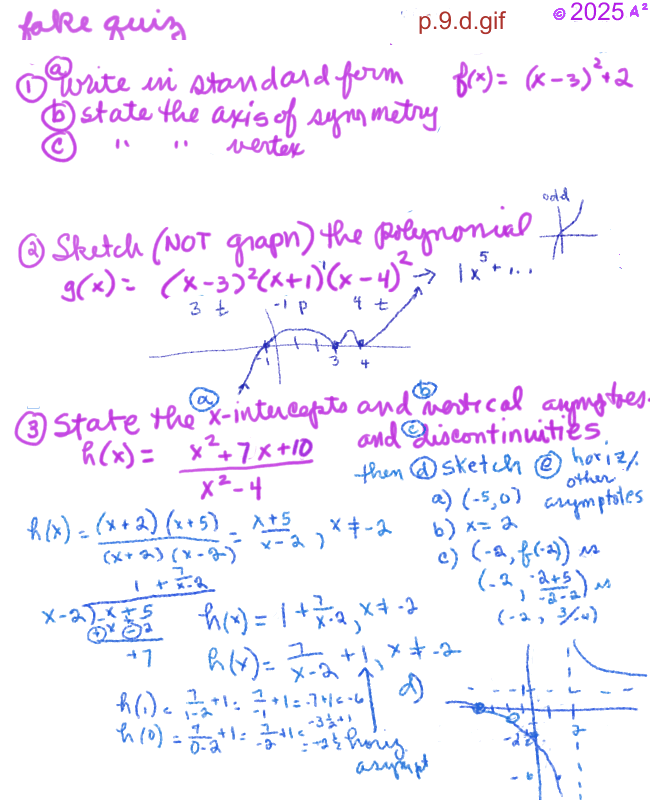 fake quiz p.9.d.gif © 2025 A²
① ⓐ Write in standard form f(x) = (x-3)²+2
ⓑ state the axis of symmetry
ⓒ " " vertex
odd
② Sketch (NOT graph) the polynomial
g(x) = (x-3)²(x+1)¹(x-4)² → 1x⁵+...
3 t -1 p 4 t
-1 3 4
ⓐ ⓑ
③ State the x-intercepts and vertical asymptotes.
ⓒ
and discontinuities.
h(x) = (x²+7x+10)/(x²-4)
then ⓓ sketch ⓔ horiz/
other
asymptotes
a) (-5,0)
b) x = 2
c) (-2, f(-2)) is
(-2, (-2+5)/(-2-2)) is
(-2, 3/-4)
h(x) = ((x+2)(x+5))/((x+2)(x-2)) = (x+5)/(x-2), x ≠ -2
1 + 7/(x-2)
x-2) x + 5
⊕x ⊖2
+7
h(x) = 1 + 7/(x-2), x ≠ -2
h(x) = 7/(x-2) + 1, x ≠ -2
h(1) = 7/(1-2) +1 = 7/-1 +1 = -7+1 = -6
-3½+1
h(0) = 7/(0-2) +1 = 7/-2 +1 = = -2½
horiz
asympt
d)
2
-2½
-6